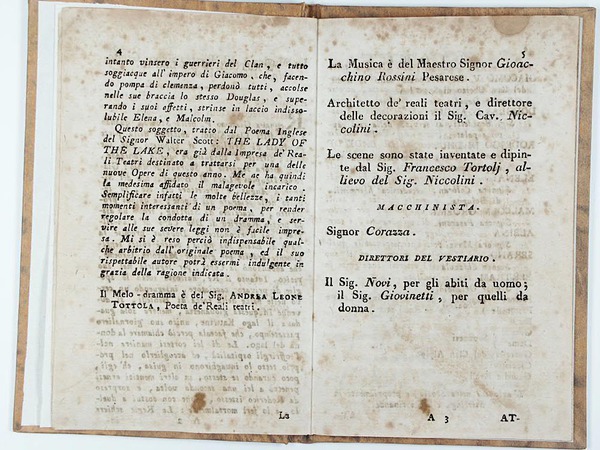 4
intanto vinsero i guerrieri del Clan, e tutto
soggiacque all' impero di Giacomo, che, facen-
do pompa di clemenza, perdonò tutti, accolse
nelle sue braccia lo stesso Douglas, e supe-
rando i suoi affetti, strinse in laccio indisso-
lubile Elena, e Malcolm.
Questo soggetto, tratto dal Poema Inglese
del Signor Walter Scott: THE LADY OF
THE LAKE, era già dalla Impresa de' Rea-
li Teatri destinato a trattarsi per una delle
nuove Opere di questo anno. Me ne ha quindi
la medesima affidato il malagevole incarico.
Semplificare infatti le molte bellezze, i tanti
momenti interessanti di un poema, per render
regolare la condotta di un dramma, e ser-
vire alle sue severe leggi non è facile impre-
sa. Mi si è reso perciò indispensabile qual-
che arbitrio dall' originale poema, ed il suo
rispettabile autore potrà essermi indulgente in
grazia della ragione indicata.
Il Melo-dramma è del Sig. ANDREA LEONE
TOTTOLA, Poeta de' Reali teatri.
La
5
La Musica è del Maestro Signor Gioac-
chino Rossini Pesarese.
Architetto de' reali teatri, e direttore
delle decorazioni il Sig. Cav. Nic-
colini.
Le scene sono state inventate e dipin-
te dal Sig. Francesco Tortolj, al-
lievo del Sig. Niccolini.
MACCHINISTA.
Signor Corazza.
DIRETTORI DEL VESTIARIO.
Il Sig. Novi, per gli abiti da uomo;
il Sig. Giovinetti, per quelli da
donna.
A 3 AT-